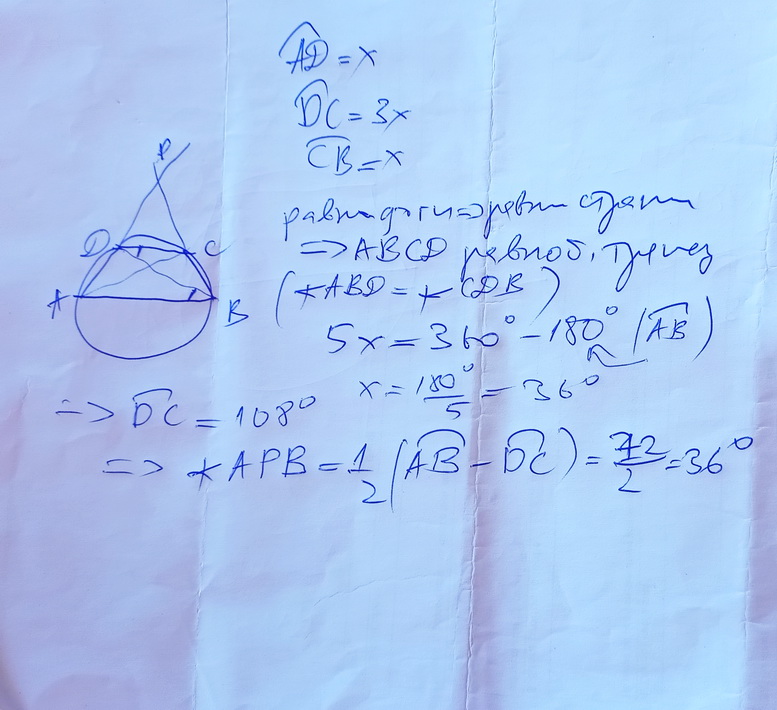 AD = x
DC = 3x
CB = x
P
D
C
A
B
равни дъги => равни страни
=> ABCD равноб. трапец
(∢ABD = ∢CDB)
5x = 360° - 180° (AB)
x = 180°/5 = 36°
=> DC = 108°
=> ∢APB = 1/2 (AB - DC) = 72/2 = 36°